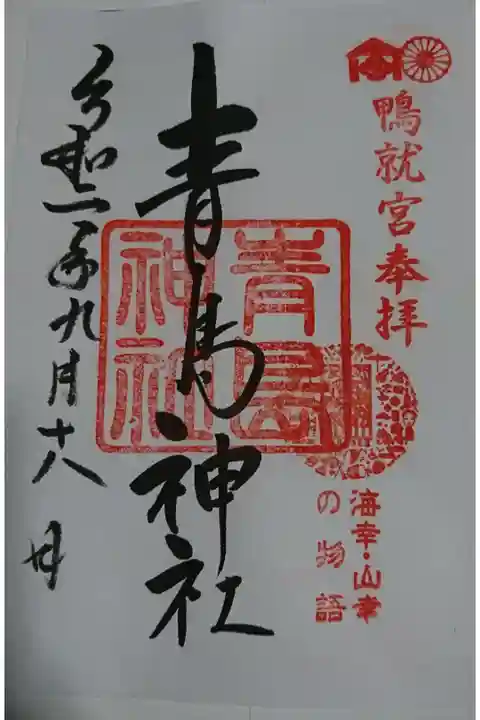 鴨就宮奉拝
海幸・山幸
の物語
青島神社
青島
神社
令和二年九月十八日